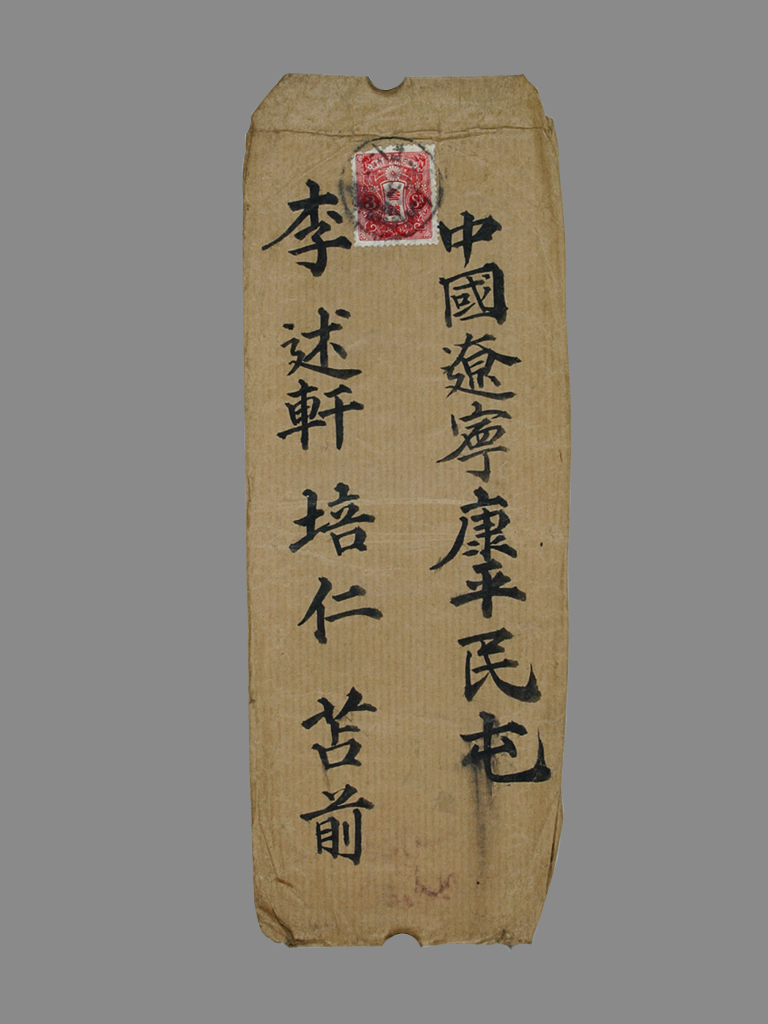 中國遼寧康平民屯
李述軒培仁苫前